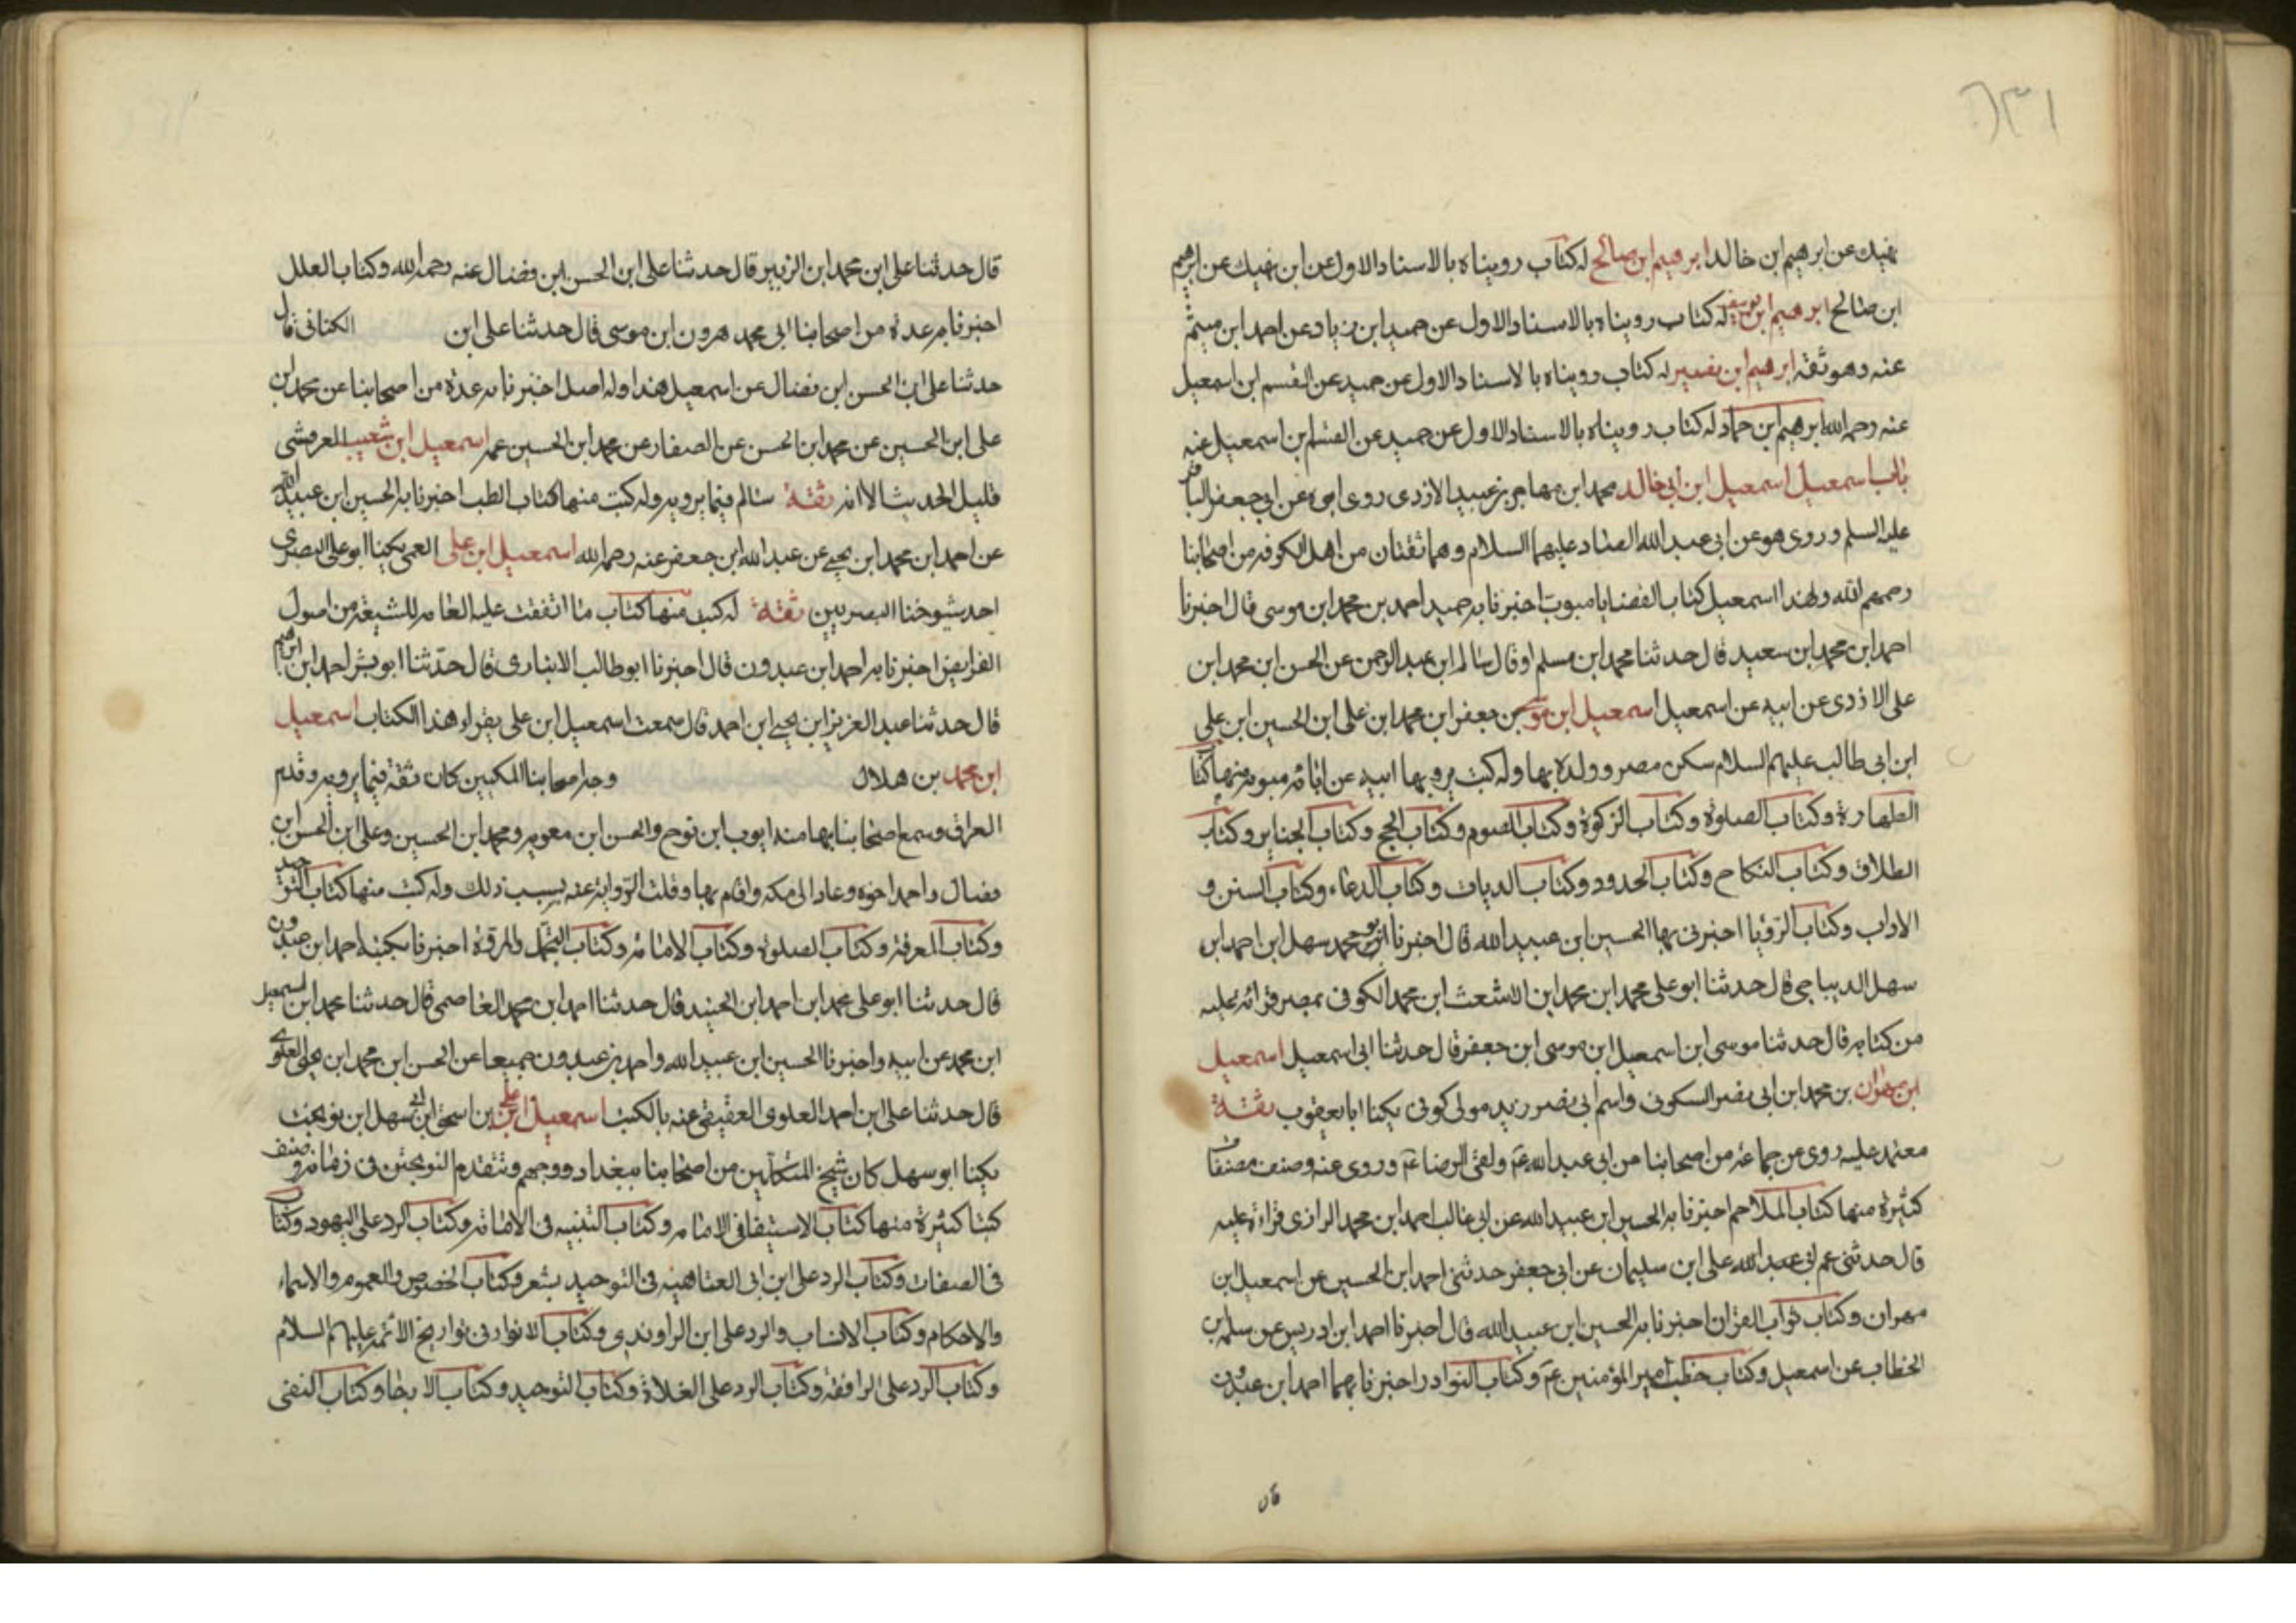 نهيك عن ابرهيم ابن خالد ابرهيم ابن صالح له كتاب رويناه بالاسناد الاول عن ابن نهيك عن ابرهيم
ابن صالح ابرهيم ابن يوسف له كتاب رويناه بالاسناد الاول عن حميد ابن زياد عن احمد ابن ميثم
عنه وهو ثقة ابرهيم ابن نصير له كتاب رويناه بالاسناد الاول عن حميد عن القسم ابن اسمعيل
عنه رحمه الله ابرهيم ابن حماد له كتاب رويناه بالاسناد الاول عن حميد عن القسم ابن اسمعيل عنه
باب اسمعيل اسمعيل ابن ابي خالد محمد ابن مهاجر بن عبيد الازدي روى ابوه عن ابي جعفر الباقر
عليه السلم وروى هو عن ابي عبد الله الصادق عليهما السلام وهما ثقتان من اهل الكوفه من اصحابنا
رحمهم الله ولهذا اسمعيل كتاب القضايا مبوب اخبرنا به حميد احمد بن محمد ابن موسى قال اخبرنا
احمد ابن محمد ابن سعيد قال حدثنا محمد ابن مسلم او قال سالم ابن عبد الرحمن عن الحسن ابن محمد ابن
على الاذدى عن ابيه عن اسمعيل اسمعيل ابن موسى بن جعفر ابن محمد ابن على ابن الحسين ابن على
ابن ابى طالب عليهم السلام سكن مصر وولده بها وله كتب يرويها ابيه عن ابائه مبوبه منها كتاب
الطهارة وكتاب الصلوة وكتاب الزكوة وكتاب الصوم وكتاب الحج وكتاب الجنايز وكتاب
الطلاق وكتاب النكاح وكتاب الحدود وكتاب الديات وكتاب الدعاء وكتاب السنن و
الاداب وكتاب الرؤيا اخبرنى بها الحسين ابن عبيد الله قال اخبرنا ابو محمد سهل ابن احمد ابن
سهل الديباجي قال حدثنا ابو على محمد ابن محمد ابن الاشعث ابن محمد الكوفى بمصر قرائه عليه
من كتابه قال حدثنا موسى ابن اسمعيل ابن موسى ابن جعفر قال حدثنا ابى اسمعيل اسمعيل
ابن مهران بن محمد ابن ابى نصر السكونى واسم ابى نصر زيد مولى كوفى يكنا ابا يعقوب ثقة
معتمد عليه روى عن جماعة من اصحابنا من ابى عبد الله ع ولقى الرضا ع وروى عنه وصنف مصنفات
كثيرة منها كتاب الملاحم اخبرنا به الحسين ابن عبيد الله عن ابى غالب احمد ابن محمد الرازى قراءة عليه
قال حدثنى عم ابى عبد الله على ابن سليمان عن ابى جعفر حدثنى احمد ابن الحسين عن اسمعيل ابن
مهران وكتاب ثواب القران اخبرنا به الحسين ابن عبيد الله قال اخبرنا احمد ابن ادريس عن سلمه بن
الخطاب عن اسمعيل وكتاب خطب امير المؤمنين ع وكتاب النوادر اخبرنا بهما احمد ابن عبدون
قال حدثنا على ابن محمد ابن الزبير قال حدثنا على ابن الحسن ابن فضال عنه رحمه الله وكتاب العلل
اخبرنا به عدة من اصحابنا ابى محمد هرون ابن موسى قال حدثنا على ابن الكنانى قال
حدثنا على ابن الحسن ابن فضال عن اسمعيل هذا وله اصل اخبرنا به عدة من اصحابنا عن محمد ابن
على ابن الحسين عن محمد ابن الحسن عن الصفار عن محمد ابن الحسين عنه اسمعيل ابن شعيب العرفشى
قليل الحديث الا انه ثقة سالم فيما يرويه وله كتب منها كتاب الطب اخبرنا به الحسين ابن عبيد الله
عن احمد ابن محمد ابن يحيى عن عبد الله ابن جعفر عنه رحمه الله اسمعيل ابن على العمى يكنا ابو على البصرى
احد شيوخنا البصريين ثقة له كتب منها كتاب ما اتفقت عليه العامه للشيعة من اصول
الفرايض اخبرنا به احمد ابن عبدون قال اخبرنا ابو طالب الانبارى قال حدثنا ابو بشر احمد ابن ابرهيم
قال حدثنا عبد العزيز ابن يحيى ابن احمد قال سمعت اسمعيل ابن على يقراء هذا الكتاب اسمعيل
ابن محمد بن هلال وجه اصحابنا المكيين كان ثقة فيما يرويه وقدم
العراق وسمع اصحابنا بها منه ايوب ابن نوح والحسن ابن معويه ومحمد ابن الحسين وعلى ابن الحسن ابن
فضال واحمد اخوه وعاد الى مكه واقام بها وقلت الرواية عنه بسبب ذلك وله كتب منها كتاب التوحيد
وكتاب المعرفة وكتاب الصلوة وكتاب الامامه وكتاب التجمل والمروة اخبرنا بكتبه احمد ابن عبدون
قال حدثنا ابو على محمد ابن احمد ابن الجنيد قال حدثنا احمد ابن محمد العاصمى قال حدثنا محمد ابن اسمعيل
ابن محمد عن ابيه واخبرنا الحسين ابن عبيد الله واحمد بن عبدون جميعا عن الحسن ابن محمد ابن يحيى العلوى
قال حدثنا على ابن احمد العلوى العقيقى عنه بالكتب اسمعيل ابن على بن اسحق ابن ابى سهل ابن نوبخت
يكنا ابو سهل كان شيخ المتكلمين من اصحابنا ببغداد ووجههم وتتقدم النوبختى فى زمانه وصنف
كتبا كثيرة منها كتاب الاستيفا فى الامامه وكتاب التنبيه فى الامامه وكتاب الرد على اليهود وكتاب
فى الصفات وكتاب الرد على ابن ابى العتاهيه فى التوحيد بشعر وكتاب الخصوص والعموم والاسماء
والاحكام وكتاب الانساب والرد على ابن الراوندى وكتاب الانوار فى تواريخ الائمه عليهم السلام
وكتاب الرد على الرافقه وكتاب الرد على الغلاة وكتاب التوحيد وكتاب الارجا وكتاب النفى
قال